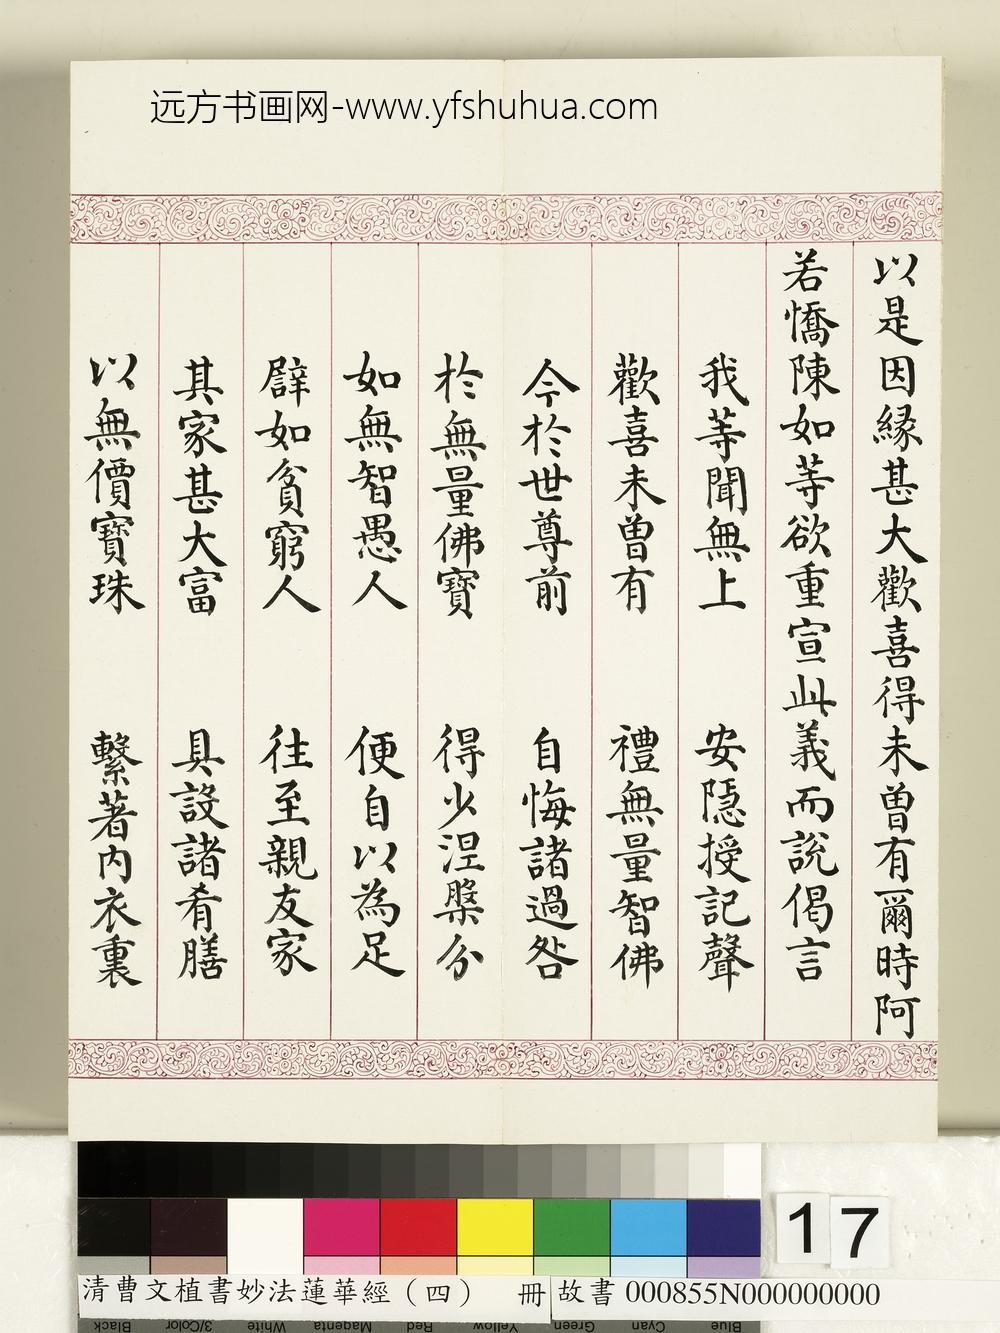 远方书画网-www.yfshuhua.com
以是因縁甚大歡喜得未曽有爾時阿
若憍陳如等欲重宣此義而說偈言
我等聞無上 安隱授記聲
歡喜未曽有 禮無量智佛
今於世尊前 自悔諸過咎
於無量佛寶 得少涅槃分
如無智愚人 便自以為足
譬如貧窮人 往至親友家
其家甚大富 具設諸肴膳
以無價寶珠 繫著内衣裏
17
清曹文植書妙法蓮華經（四） 冊 故書 000855N000000000
Black 3/Color White Magenta Red Yellow Green Cyan Blue